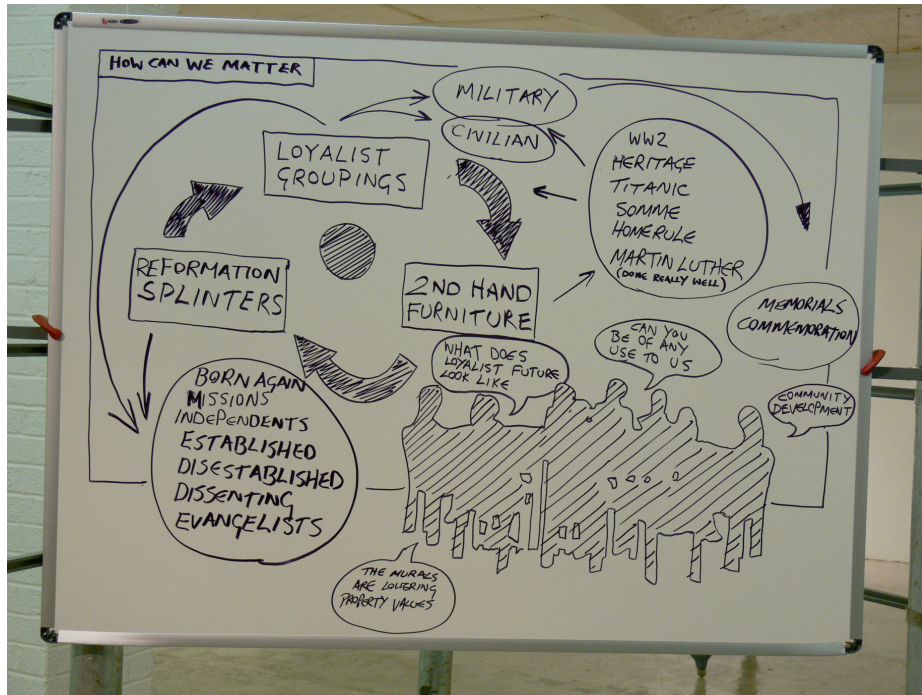 HOW CAN WE MATTER
MILITARY
CIVILIAN
LOYALIST
GROUPINGS
WW2
HERITAGE
TITANIC
SOMME
HOMERULE
MARTIN LUTHER
(DONE REALLY WELL)
REFORMATION
SPLINTERS
2ND HAND
FURNITURE
MEMORIALS
COMMEMORATION
WHAT DOES
LOYALIST FUTURE
LOOK LIKE
CAN YOU
BE OF ANY
USE TO US
COMMUNITY
DEVELOPMENT
BORN AGAIN
MISSIONS
INDEPENDENTS
ESTABLISHED
DISESTABLISHED
DISSENTING
EVANGELISTS
THE MURALS
ARE LOWERING
PROPERTY VALUES